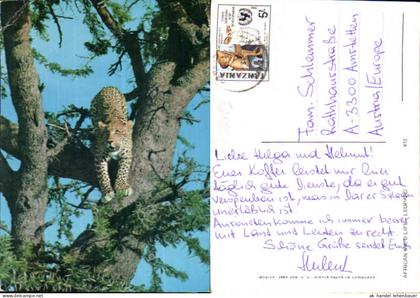 5/-
TANZANIA
Fam. Schlemmer
Rathausstraße
A-3300 Amstetten
Austria/Europe
Liebe Helga und Helmut!
Euer Koffer leistet mir hier
täglich gute Dienste, da er gut
versperrbar ist, was in Dar es Salaam
unerläßlich ist.
Ansonsten komme ich immer besser
mit Land und Leuten zu recht.
Schöne Grüße sendet Euch
AFRICAN WILD LIFE: LEOPARD
412
© ak handel lehenbauer